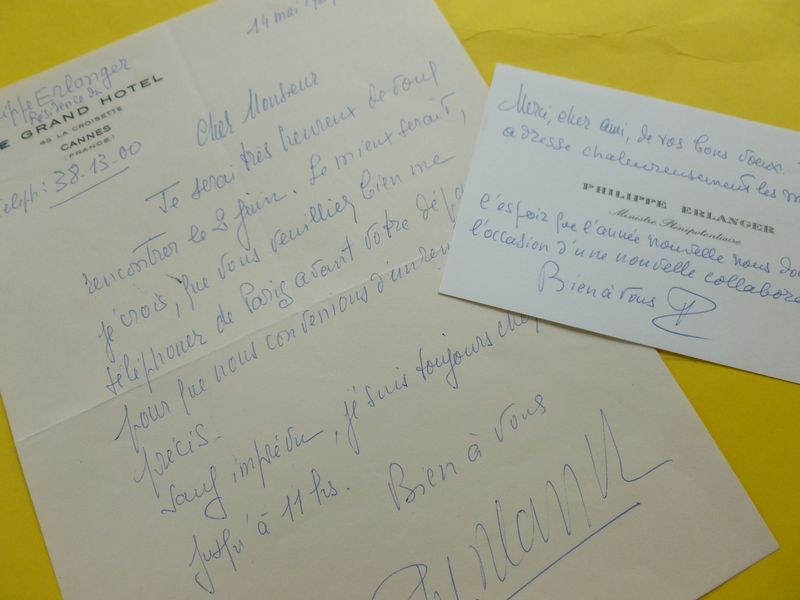 14 mai
Erlanger
Résidence du
GRAND HOTEL
45 LA CROISETTE
CANNES
(FRANCE)
Téléph: 38.13.00
Cher Monsieur
Je serai très heureux de vous
rencontrer le 3 Juin. Le mieux serait,
je crois, que vous veuilliez bien me
téléphoner de Paris avant votre
pour que nous convenions d'un
précis.
Sauf imprévu, je suis toujours
jusqu'à 11 hs.
Bien à vous
Merci, cher ami, de vos bons voeux.
adresse chaleureusement les
PHILIPPE ERLANGER
Ministre Plénipotentiaire
l'espoir que l'année nouvelle nous
l'occasion d'une nouvelle
Bien à vous